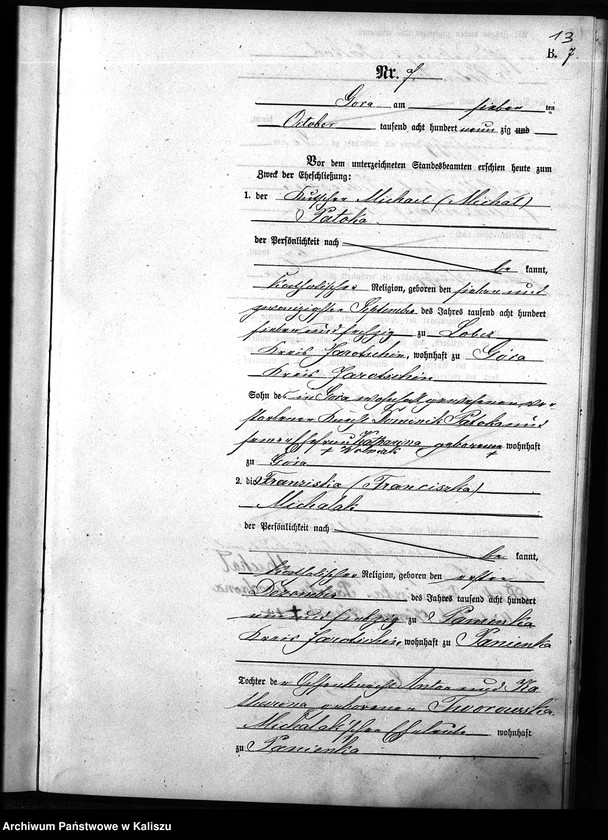 13
B. 7.
Nr. 7.
Gora am sieben ten
October tausend acht hundert neun zig und
Vor dem unterzeichneten Standesbeamten erschien heute zum
Zweck der Eheschließung:
1. der Kutscher Michael (Michał)
Patoka
der Persönlichkeit nach
be kannt,
katholischer Religion, geboren den sieben und
zwanzigsten September des Jahres tausend acht hundert
sieben und sechzig zu Lobez
Kreis Jarotschin, wohnhaft zu Gora
Kreis Jarotschin
Sohn des in Gora wohnhaft gewesenen, ver-
storbenen Knecht Dominik Patoka und
seiner Ehefrau Katharina geborenen wohnhaft
+ Wolniak +
zu Gora
2. die Franziska (Franciszka)
Michalak
der Persönlichkeit nach
be kannt,
katholischer Religion, geboren den ersten
Dezember des Jahres tausend acht hundert
und zig zu Panienka
Kreis Jarotschin, wohnhaft zu Panienka
Tochter der Anton und Ka-
tharzona geborenen Tworowska,
Michalak'schen Eheleute wohnhaft
zu Panienka
Archiwum Państwowe w Kaliszu